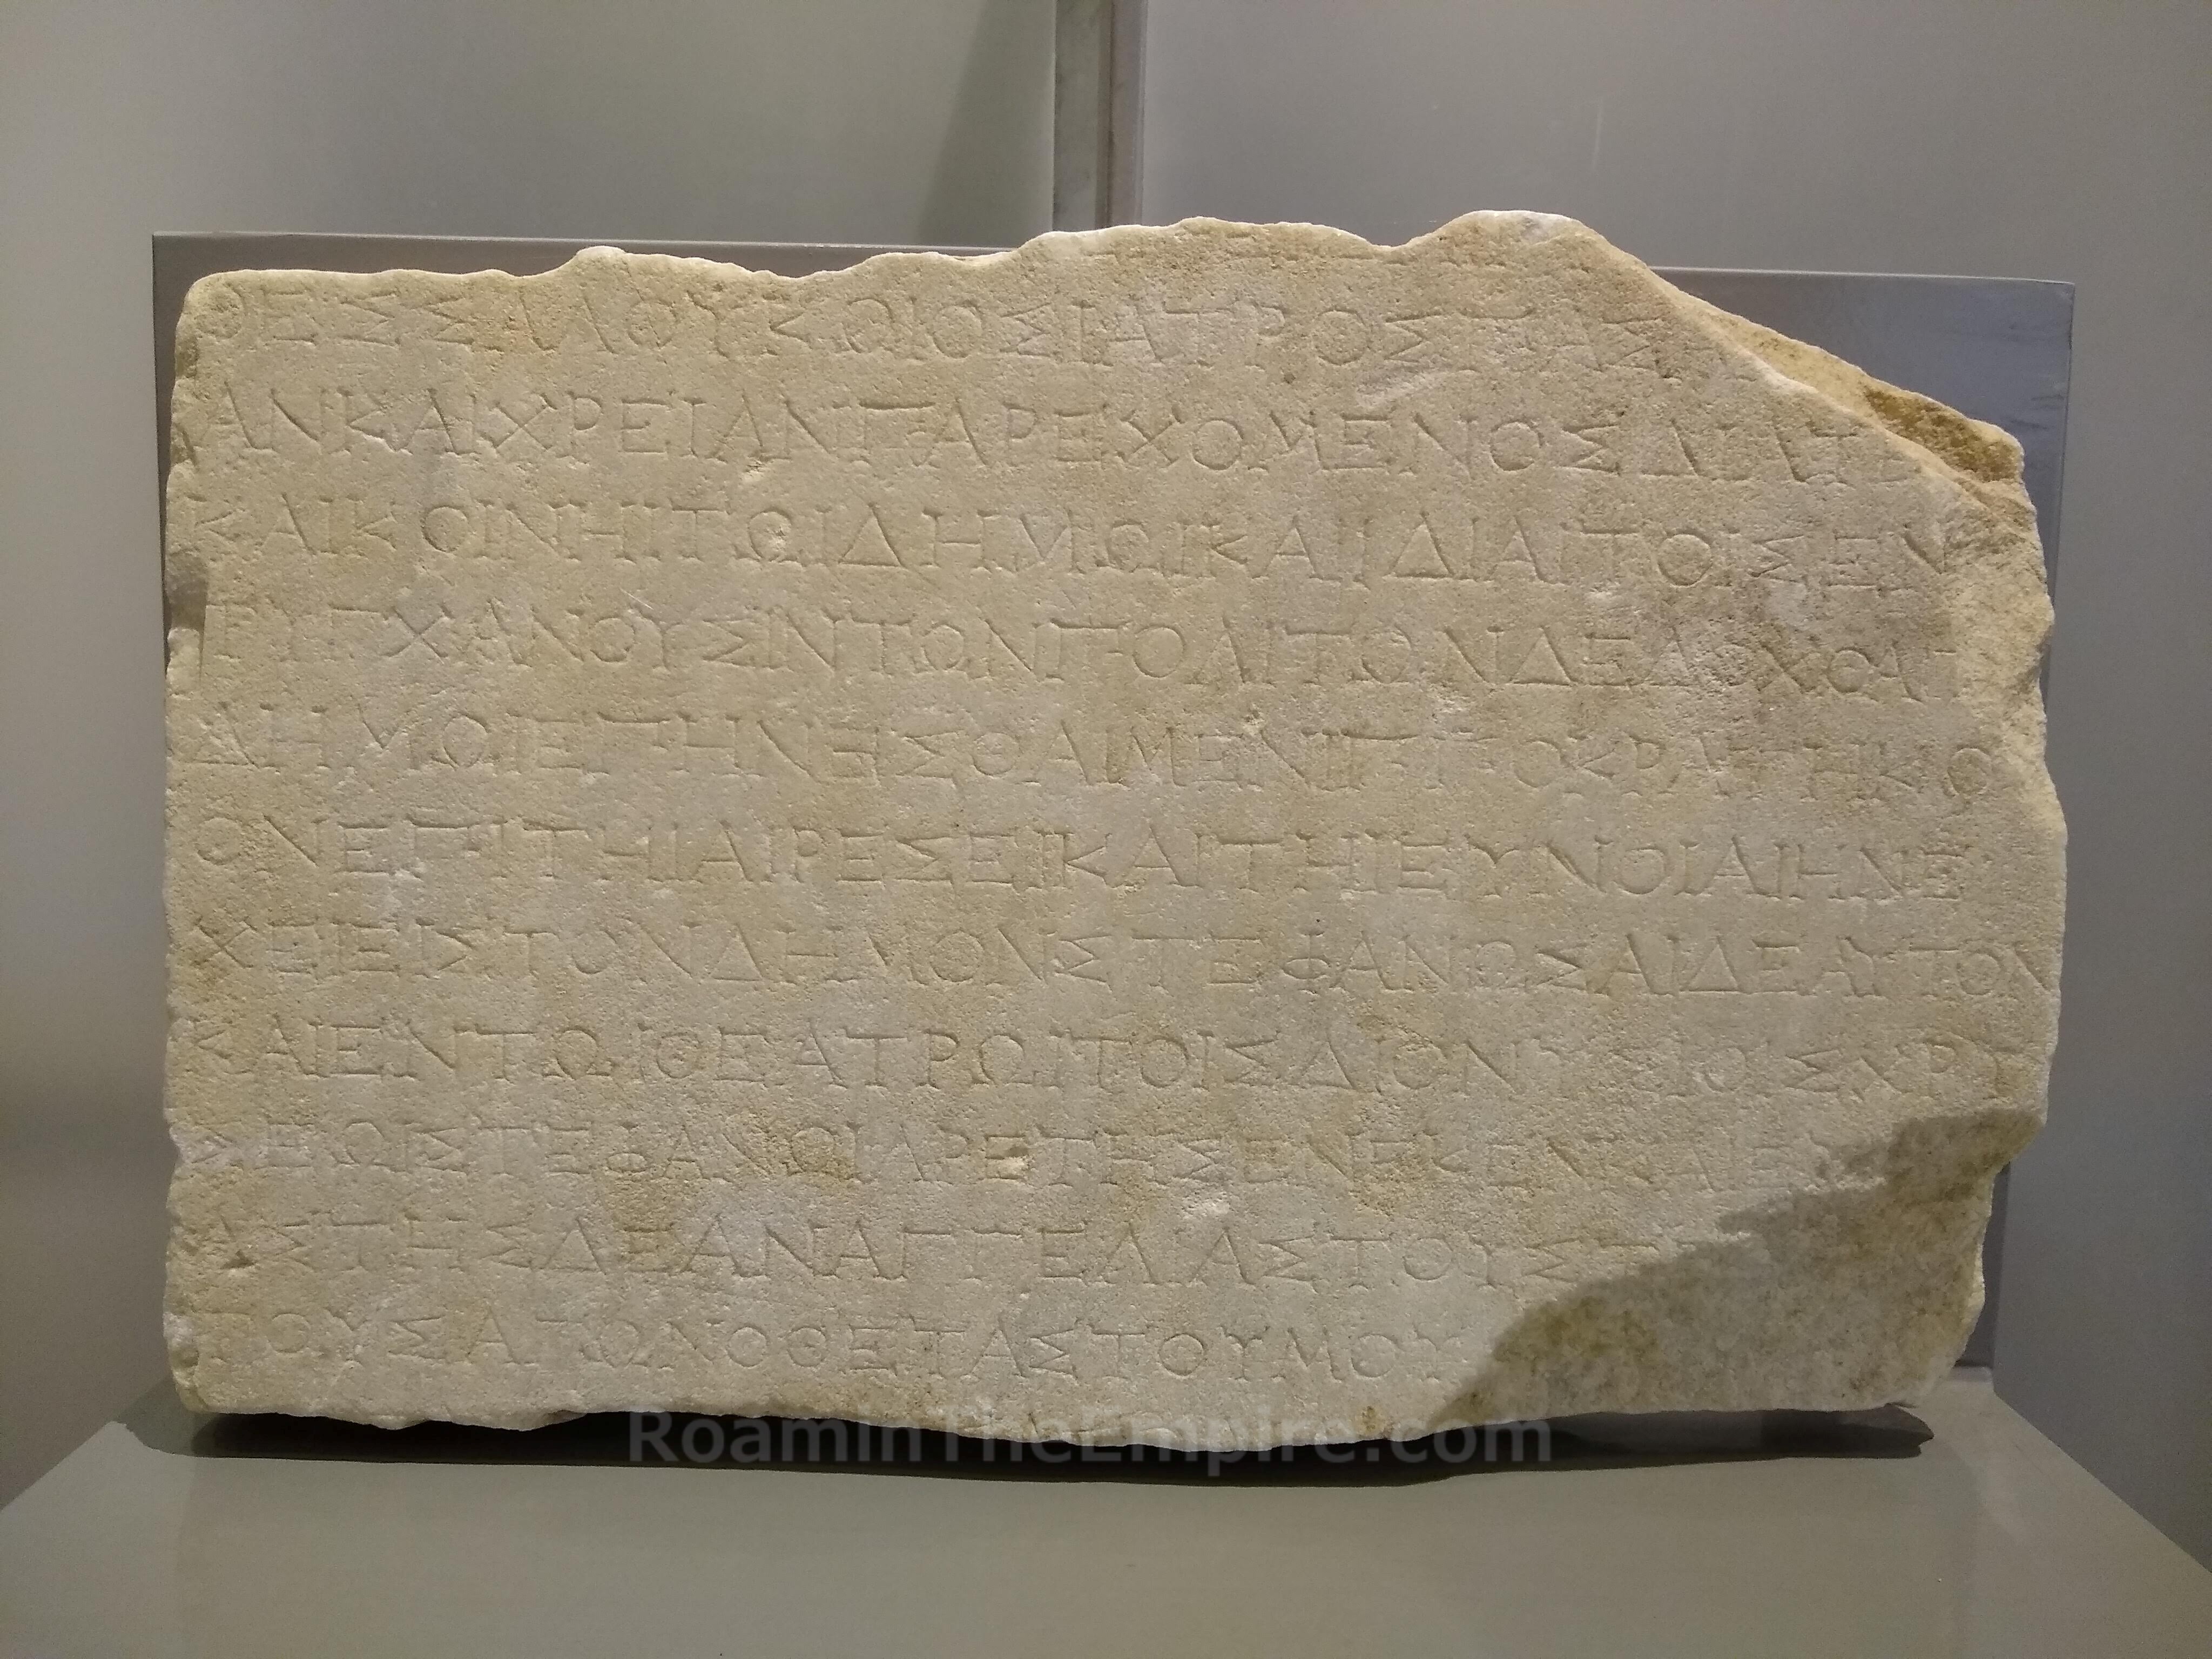 ΘΕΣΣΑΛΟΥΚΩΙΟΣΙΑΤΡΟΣΠΑΣΑ
ΑΝΚΑΙΧΡΕΙΑΝΠΑΡΕΧΟΜΕΝΟΣΔΙΑΤ
ΚΑΙΚΟΙΝΗΙΤΩΙΔΗΜΩΙΚΑΙΙΔΙΑΙΤΟΙΣΕΝ
ΤΥΓΧΑΝΟΥΣΙΝΤΩΝΠΟΛΙΤΩΝΔΕΔΟΧΘΑΙΤ
ΔΗΜΩΙΕΠΗΝΕΙΣΘΑΙΜΕΝΙΠΠΟΚΡΑΤΗΚΩ
ΟΝΕΠΙΤΗΙΑΙΡΕΣΕΙΚΑΙΤΗΙΕΥΝΟΙΑΙΗΝΕ
ΧΕΙΕΙΣΤΟΝΔΗΜΟΝΣΤΕΦΑΝΩΣΑΙΔΕΑΥΤΟΝ
ΚΑΙΕΝΤΩΙΘΕΑΤΡΩΙΤΟΙΣΔΙΟΝΥΣΙΟΙΣΧΡΥ
ΣΕΩΙΣΤΕΦΑΝΩΙΑΡΕΤΗΣΕΝΕΚΕΝΚΑΙΕΥ
ΑΣΤΗΣΔΕΑΝΑΓΓΕΛΙΑΣΤΟΥΣ
ΤΟΥΣΑΓΩΝΟΘΕΤΑΣΤΟΥΜΟΥ
RoaminTheEmpire.com